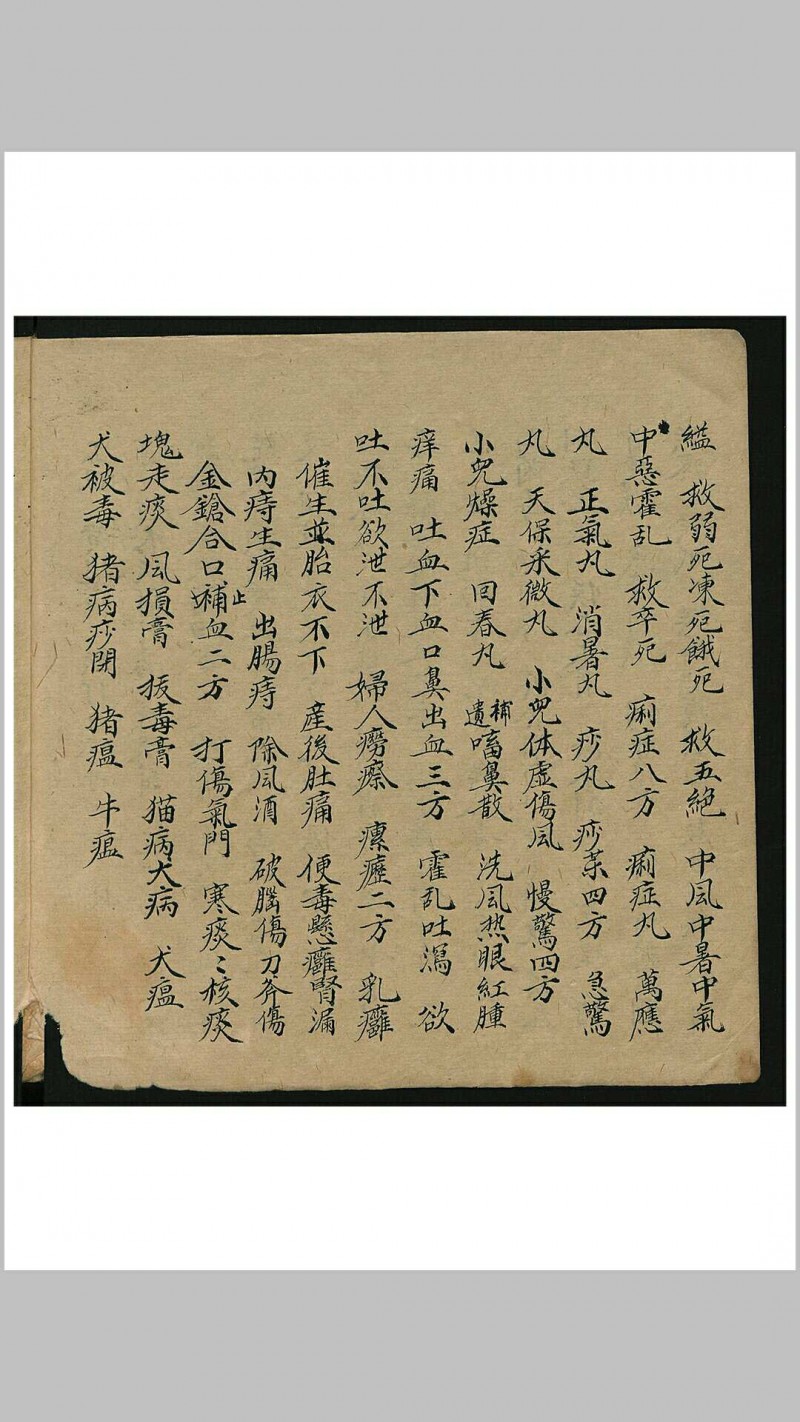 縊　救弱死凍死餓死　救五絕　中風中暑中氣
中惡霍乱　救卒死　痢症八方　痢症丸　萬應
丸　正氣丸　消暑丸　痧丸　痧藥四方　急驚
丸　天保采微丸　小兒体虛傷風　慢驚四方
小兒燥症　回春丸　補遺　㗜鼻散　洗風热眼紅腫
痒痛　吐血下血口鼻出血三方　霍乱吐瀉　欲
吐不吐欲泄不泄　婦人癆瘵　瘰癧二方　乳癰
催生並胎衣不下　產後肚痛　便毒懸癰腎漏
內痔生痛　出腸痔　除風酒　破腦傷刀斧傷
金鎗合口止補血二方　打傷氣門　寒痰〻核痰
塊走痰　風損膏　拔毒膏　猫病犬病　犬瘟
犬被毒　猪病痧閉　猪瘟　牛瘟